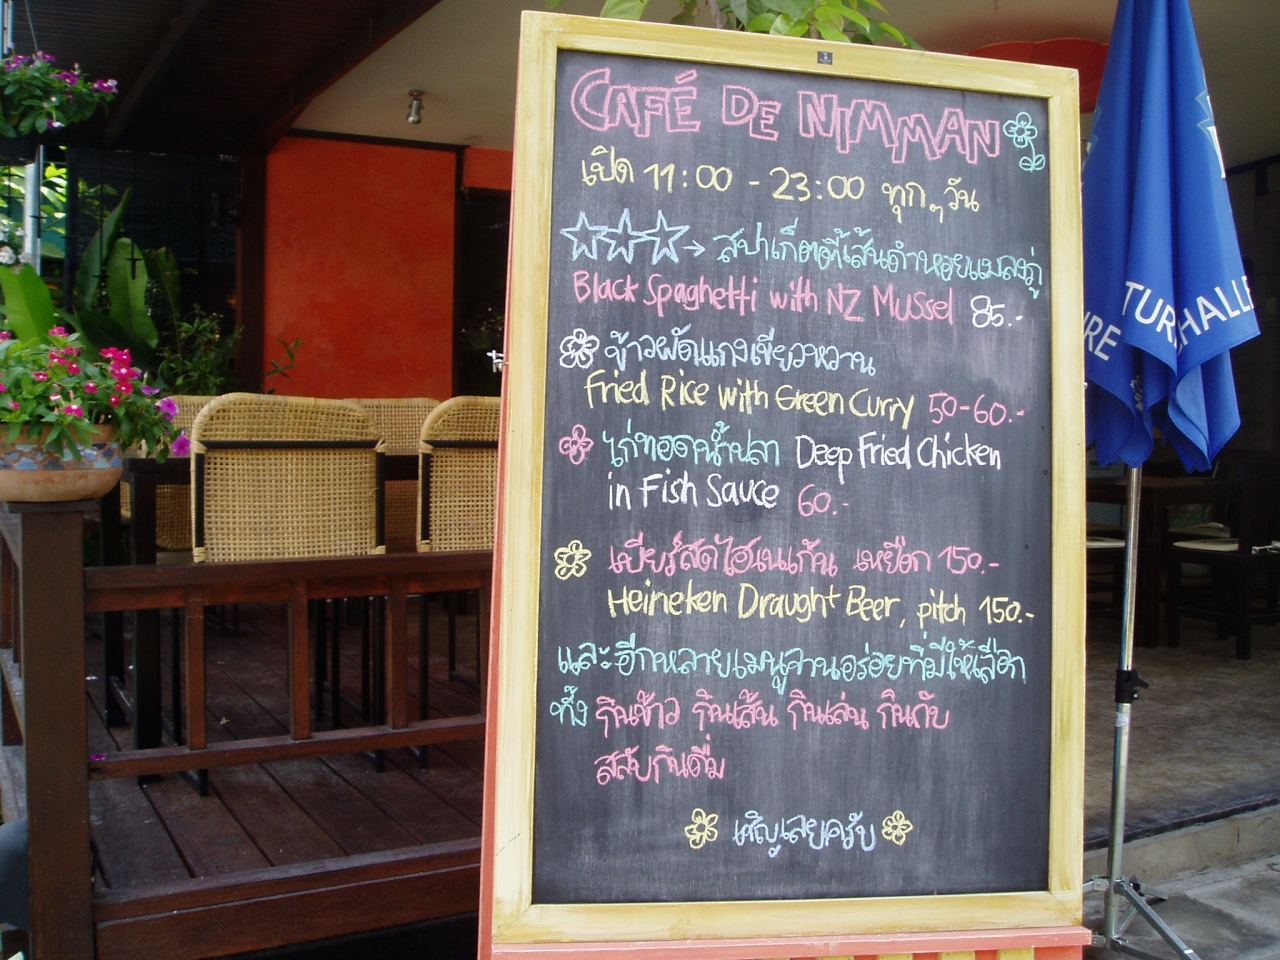 CAFÉ DE NIMMAN
เปิด 11:00 - 23:00 ทุกๆวัน
สปาเก็ตตี้เส้นดำหอยแมลงภู่
Black Spaghetti with NZ Mussel 85.-
ข้าวผัดแกงเขียวหวาน
Fried Rice with Green Curry 50-60.-
ไก่ทอดน้ำปลา Deep Fried Chicken
in Fish Sauce 60.-
เบียร์สดไฮเนเก้น เหยือก 150.-
Heineken Draught Beer, pitch 150.-
และอีกหลายเมนูจานอร่อยที่มีให้เลือก
ทั้ง กินข้าว กินเส้น กินเล่น กินกับ
กินดื่ม
เชิญเลยครับ
TURCHALLE